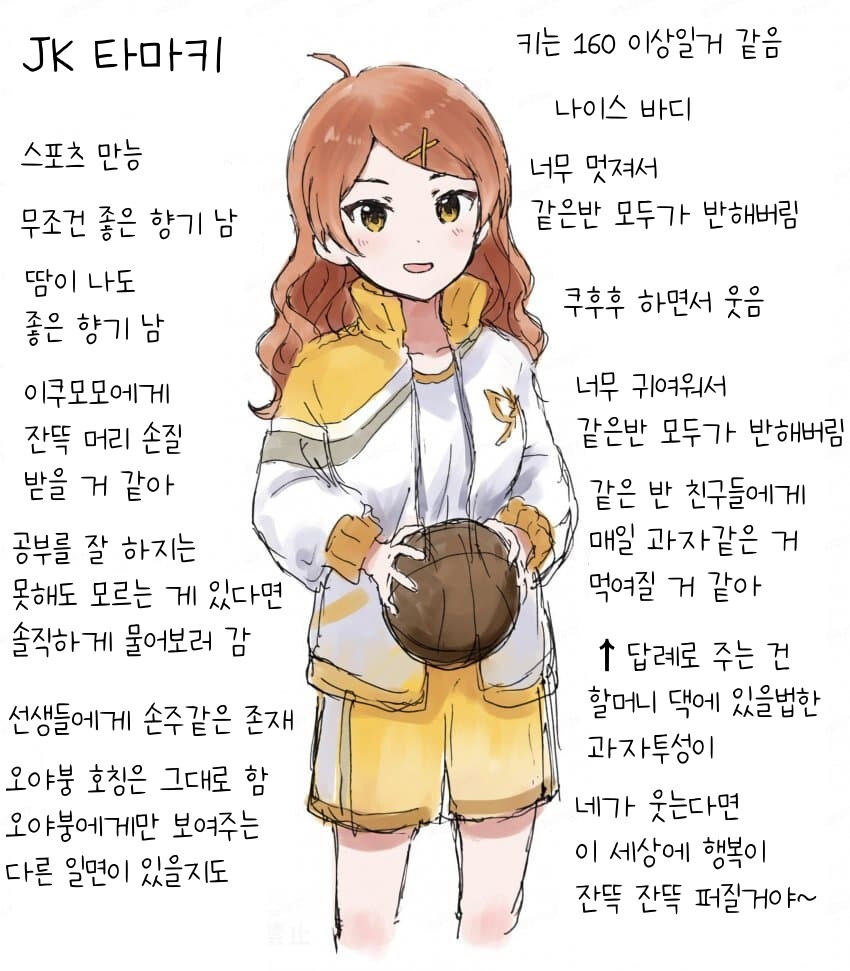 JK 타마키
스포츠 만능
무조건 좋은 향기 남
땀이 나도
좋은 향기 남
이쿠모모에게
잔뜩 머리 손질
받을 거 같아
공부를 잘 하지는
못해도 모르는 게 있다면
솔직하게 물어보러 감
선생들에게 손주같은 존재
오야붕 호칭은 그대로 함
오야붕에게만 보여주는
다른 일면이 있을지도
키는 160 이상일거 같음
나이스 바디
너무 멋져서
같은반 모두가 반해버림
쿠후후 하면서 웃음
너무 귀여워서
같은반 모두가 반해버림
같은 반 친구들에게
매일 과자같은 거
먹여질 거 같아
↑ 답례로 주는 건
할머니 댁에 있을법한
과자투성이
네가 웃는다면
이 세상에 행복이
잔뜩 잔뜩 퍼질거야~